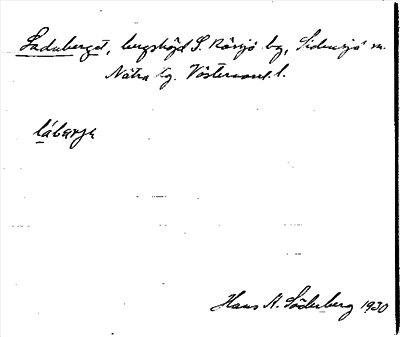 Laduberget, bergshöjd S. Rössjö by, Sidensjö sn.
Nätra tg. Västernorrl. l.
låbarje
Hans A. Söderberg 1930